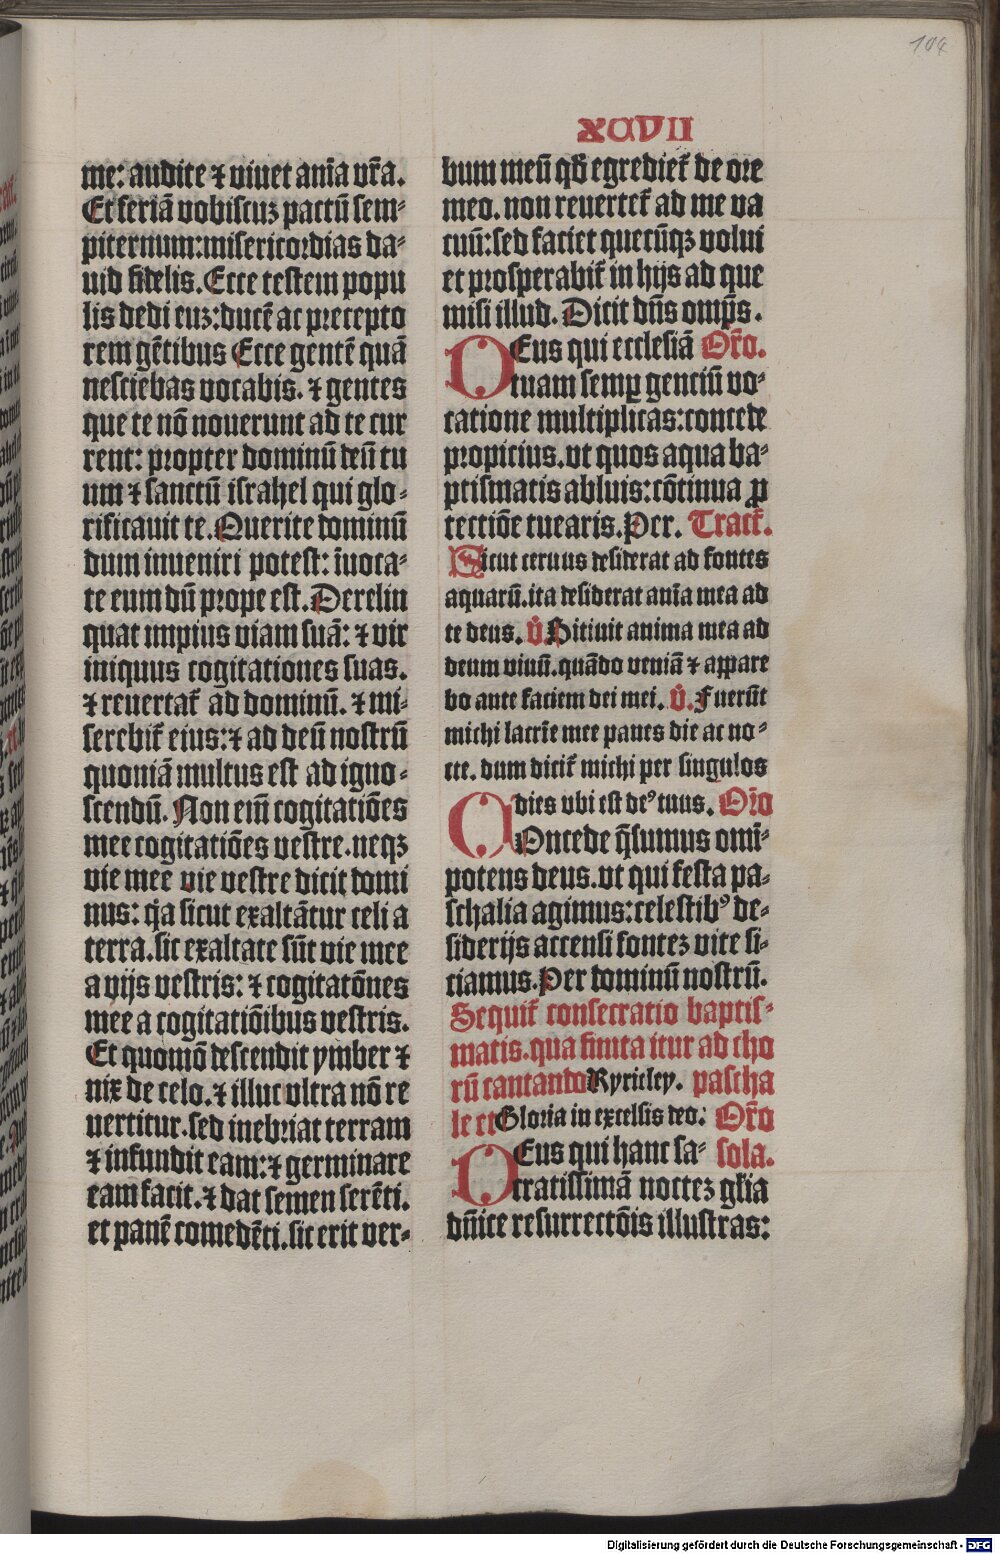 104
XCVII
me: audite ⁊ viuet anīa vr̄a.
Et feriā vobiscuz pactū sem-
piternum: misericordias da-
uid fidelis. Ecce testem popu
lis dedi euz: ducē ac precepto
rem gētibus Ecce gentē quā
nesciebas vocabis. ⁊ gentes
que te nō nouerunt ad te cur
rent: propter dominū deū tu
um ⁊ sanctū israhel qui glo-
rificauit te. Querite dominū
dum inueniri potest: īuoca-
te eum dū prope est. Derelin
quat impius viam suā: ⁊ vir
iniquus cogitationes suas.
⁊ reuertat᷑ ad dominū. ⁊ mi-
serebit᷑ eius: ⁊ ad deū nostrū
quoniā multus est ad igno-
scendū. Non eīm cogitatiōes
mee cogitatiōes vestre. neqꝫ
vie mee vie vestre dicit domi
nus: q̄a sicut exaltātur celi a
terra. sic exaltate sūt vie mee
a vijs vestris: ⁊ cogitatōnes
mee a cogitatiōibus vestris.
Et quomō descendit ymber ⁊
nix de celo. ⁊ illuc vltra nō re
uertitur. sed inebriat terram
⁊ infundit eam: ⁊ germinare
eam facit. ⁊ dat semen serēti.
et panē comedēti. sic erit ver-
bum meū qd̄ egrediet᷑ de ore
meo. non reuertet᷑ ad me va
cuū: sed faciet quecūqꝫ volui
et prosperabit᷑ in hijs ad que
misi illud. Dicit dn̄s omp̄s.
DEus qui ecclesiā Or̄o.
tuam semꝑ genciū vo-
catione multiplicas: concede
propicius. vt quos aqua ba-
ptismatis abluis: cōtinua ꝓ
tectiōe tuearis. Per. Tract᷑.
Sicut ceruus desiderat ad fontes
aquarū. ita desiderat anīa mea ad
te deus. V̊. Sitiuit anima mea ad
deum viuū. quādo veniā ⁊ appare
bo ante faciem dei mei. V̊. Fuerūt
michi lacrīe mee panes die ac no-
cte. dum dicit᷑ michi per singulos
dies vbi est deꝰ tuus. Or̄o
COncede q̄sumus omī-
potens deus. vt qui festa pa-
schalia agimus: celestibꝰ de-
siderijs accensi fontez vite si-
ciamus. Per dominū nostrū.
Sequit᷑ consecratio baptis-
matis. qua finita itur ad cho
rū cantando Kyrieley. pascha
le et Gloria in excelsis deo. Or̄o
DEus qui hanc sa- sola.
cratissimā noctez gl̄ia
dn̄ice resurrectōis illustras:
Digitalisierung gefördert durch die Deutsche Forschungsgemeinschaft - DFG